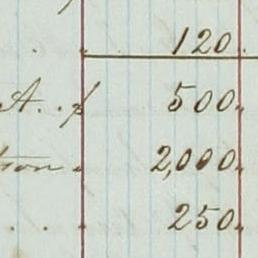 120.
A. . 500.
2,000.
. . . 250.